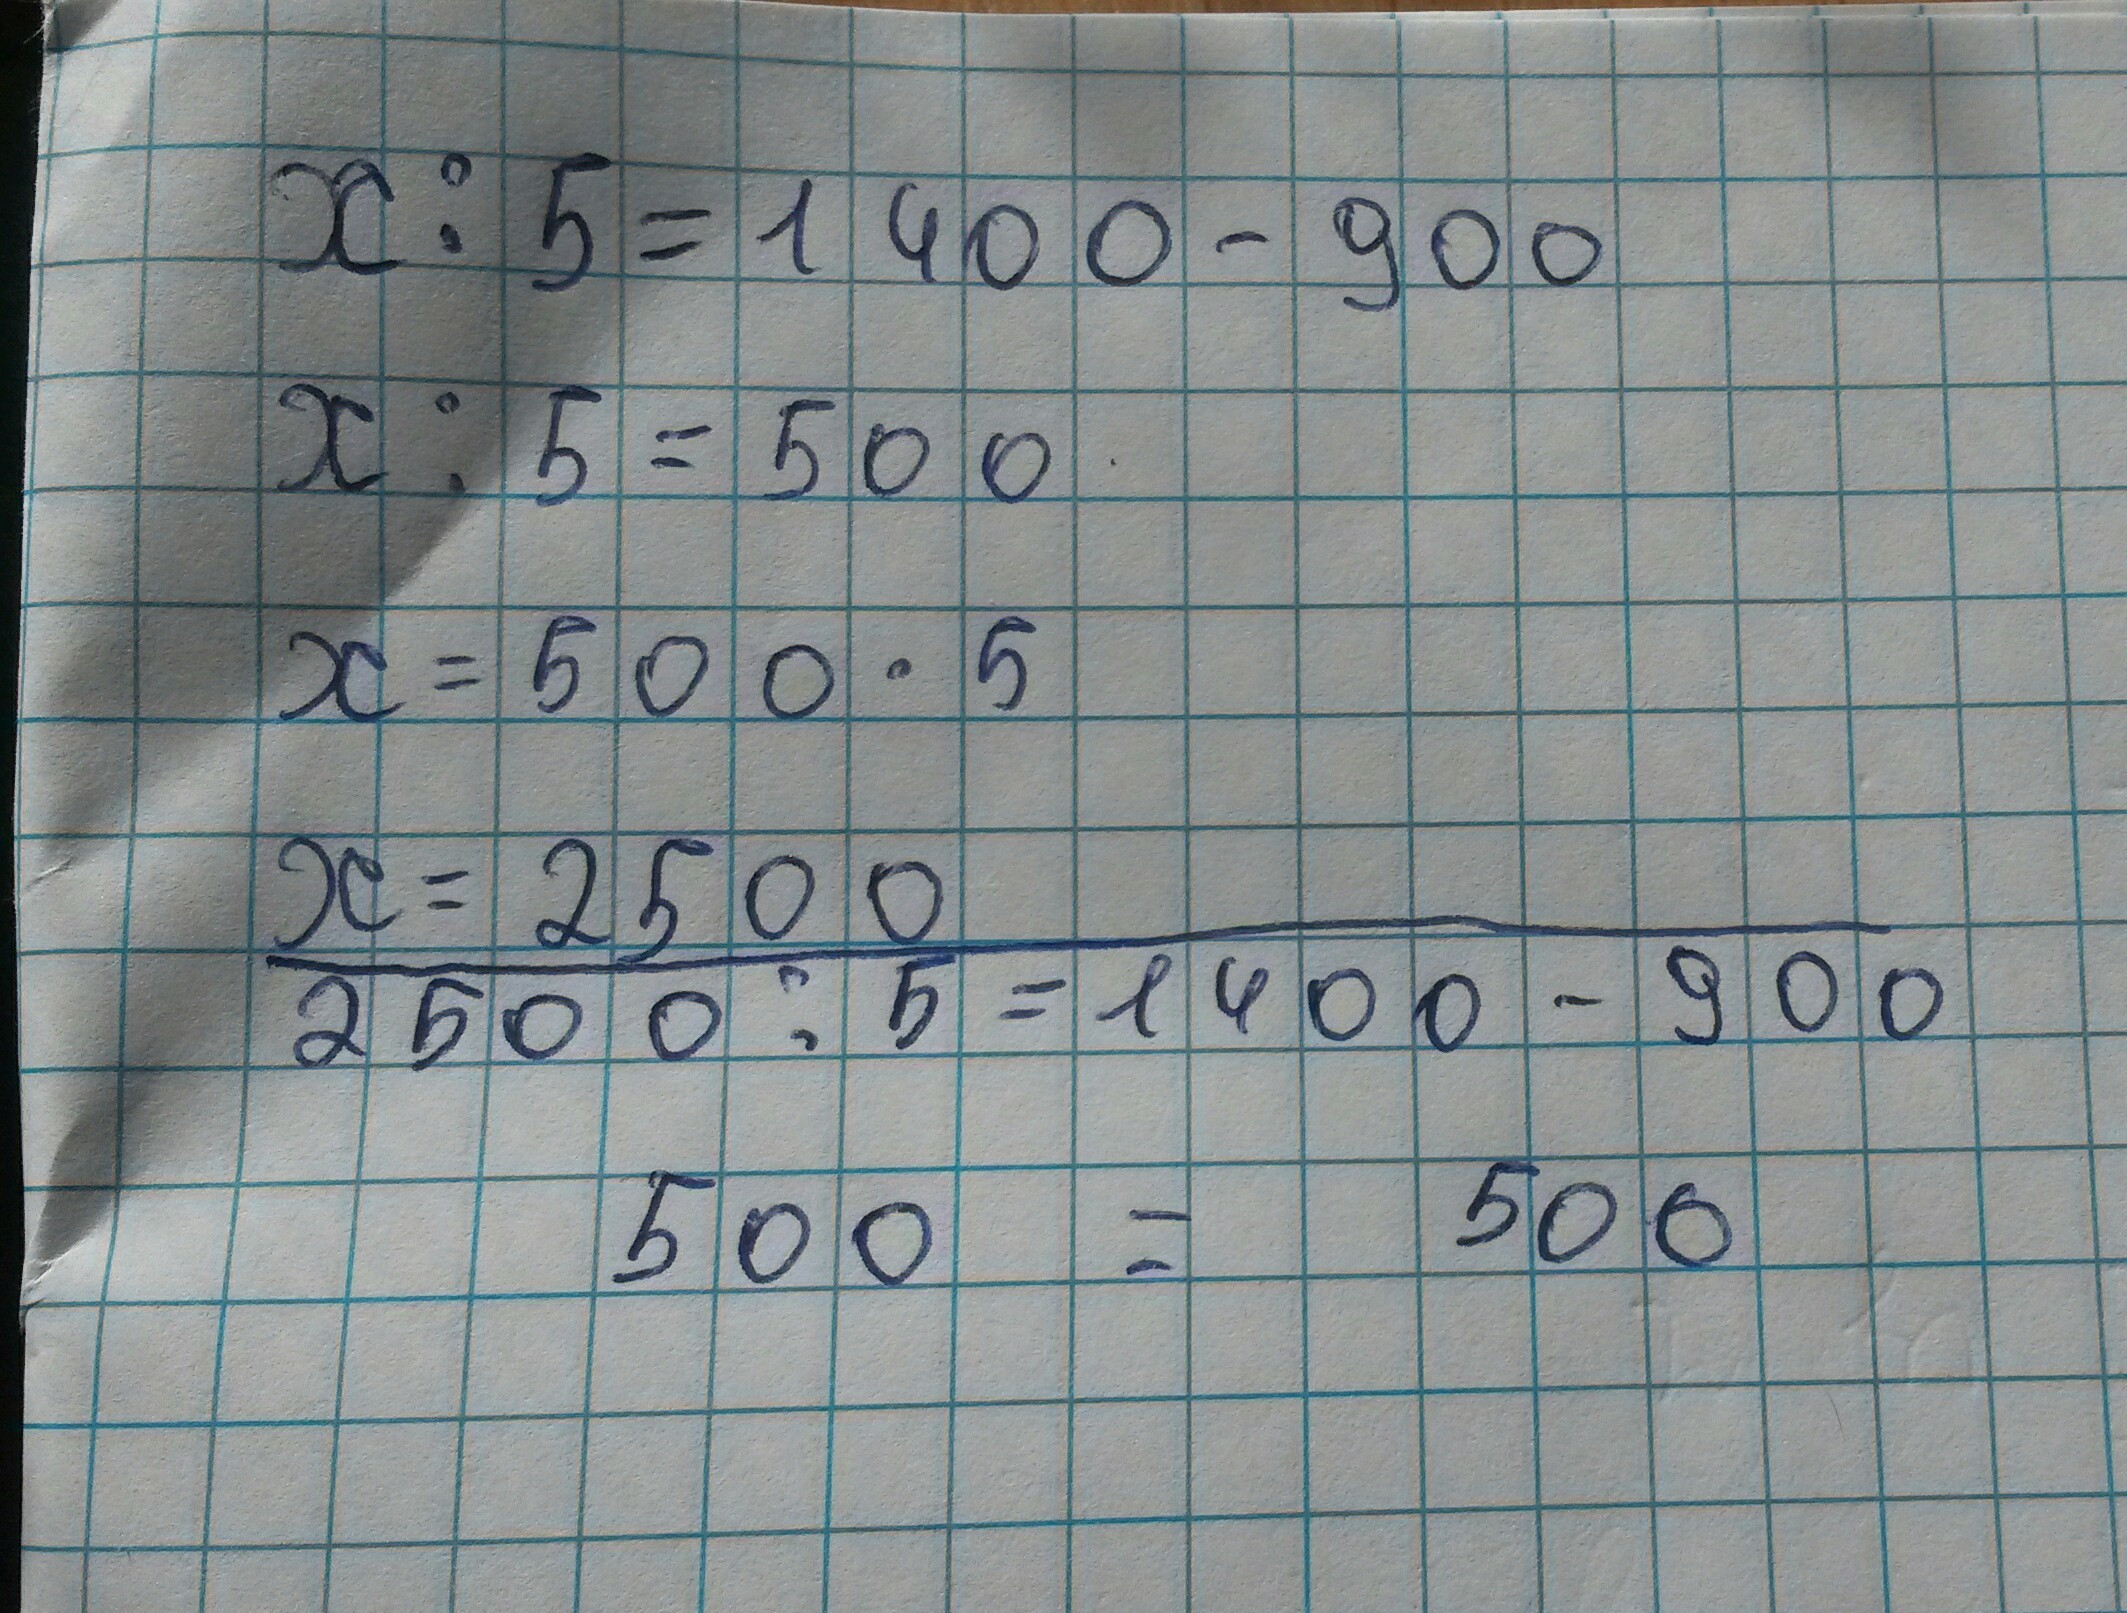 x : 5 = 1400 - 900
x : 5 = 500
x = 500 · 5
x = 2500
2500 : 5 = 1400 - 900
500 = 500